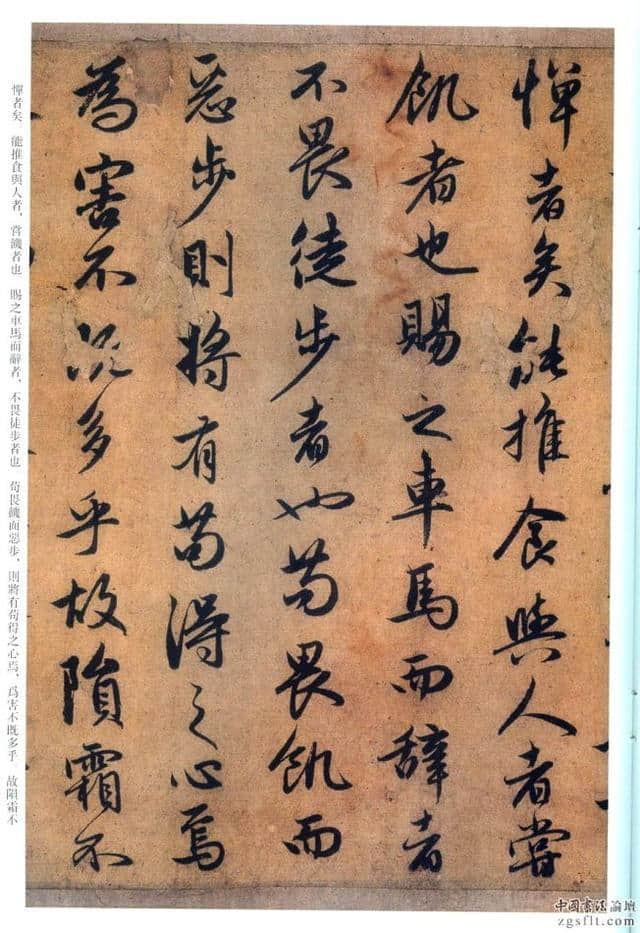 惮者矣能推食與人者嘗
飢者也賜之車馬而辞者
不畏徒步者也苟畏飢而
惡步則将有苟得之心焉
為害不既多乎故隕霜不
惮者矣　能推食與人者、嘗饑者也　賜之車馬而辭者、不畏徒步者也　苟畏饑而惡步、則將有苟得之心焉、爲害不既多乎　故隕霜不
中國書法論壇
zgsflt.com